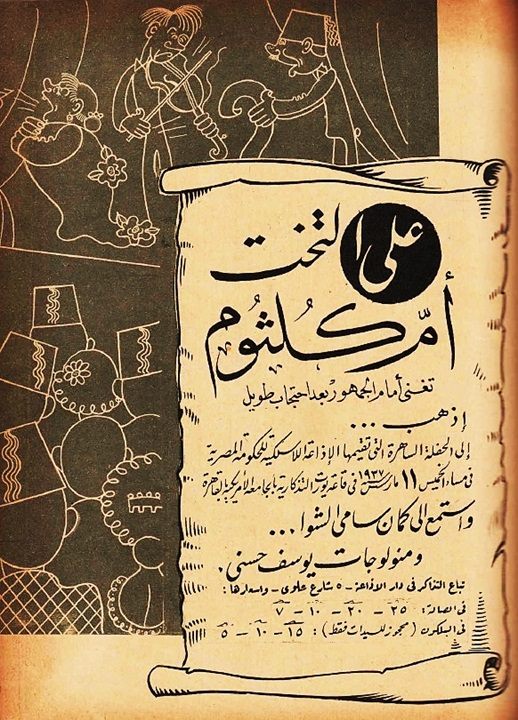 على التخت
أمّ كلثوم
تغنى أمام الجمهور بعد احتجاب طويل
إذهب ...
إلى الحفلة الساهرة التى تقيمها الإذاعة اللاسلكية للحكومة المصرية
فى مساء الخميس ١١ مارس ١٩٣٧ فى قاعة يورت التذكارية بالجامعة الأمريكية بالقاهرة
واستمع إلى كمان سامى الشوا ...
ومنولوجات يوسف حسنى .
تباع التذاكر فى دار الاذاعة - ٥ شارع علوى - واسعارها :
فى الصالة : ٢٥ - ٢٠ - ١٠ - ٧
فى البلكون ( محجوز للسيدات فقط ) : ١٥ - ١٠ - ٥